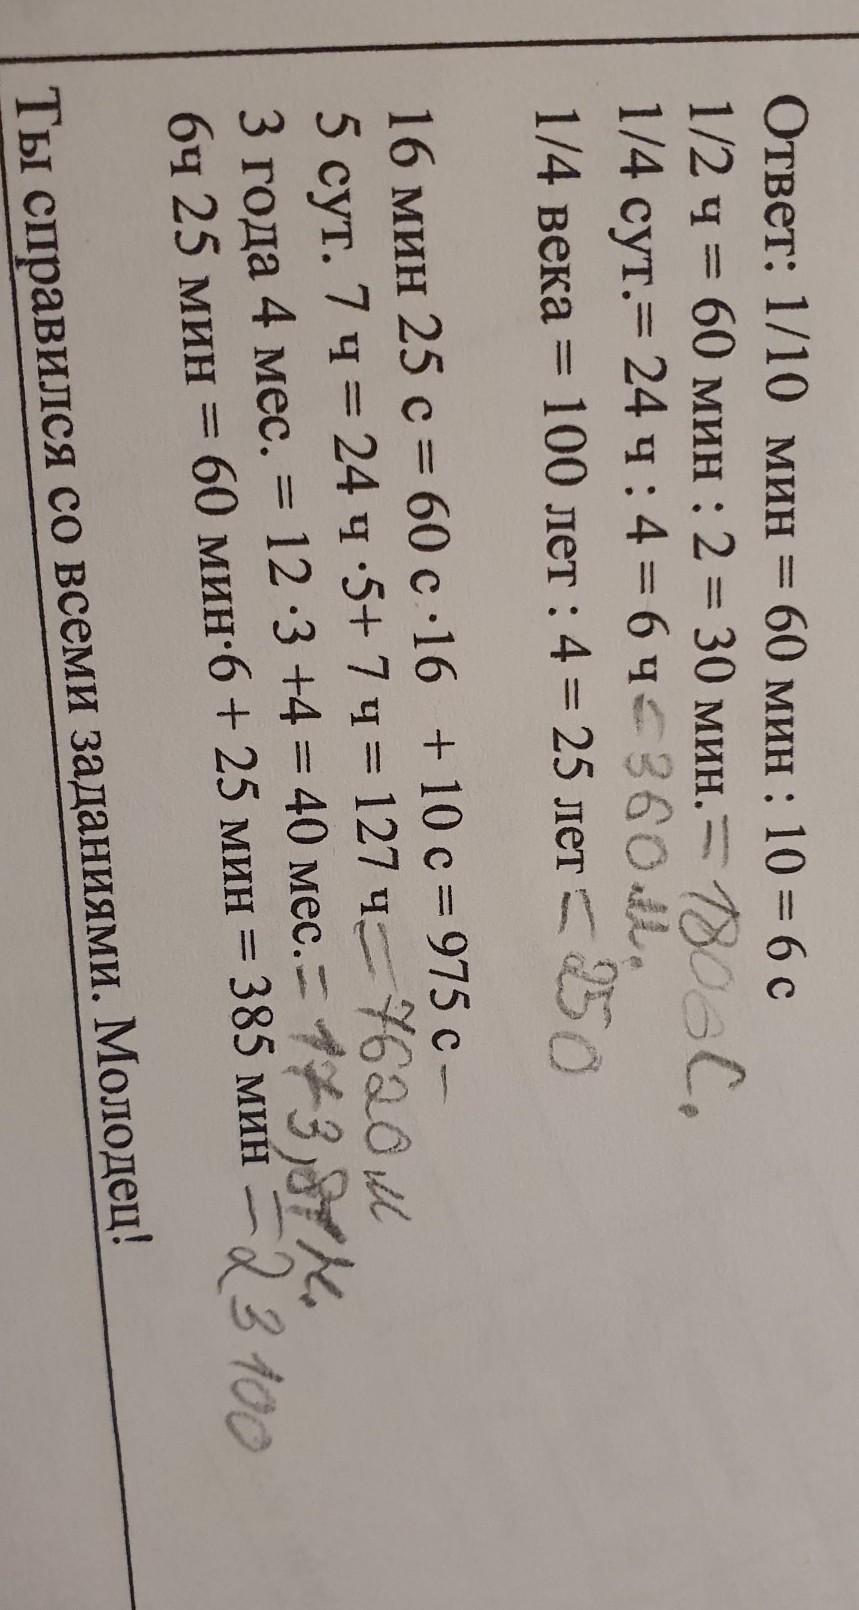 Ответ: 1/10 мин = 60 мин : 10 = 6 с
1/2 ч = 60 мин : 2 = 30 мин. = 1800 с.
1/4 сут.= 24 ч : 4 = 6 ч = 360 м.
1/4 века = 100 лет : 4 = 25 лет = 250
16 мин 25 с = 60 с ·16 + 10 с = 975 с –
5 сут. 7 ч = 24 ч ·5+ 7 ч = 127 ч = 7620 м
3 года 4 мес. = 12 ·3 +4 = 40 мес. = 173,
6ч 25 мин = 60 мин·6 + 25 мин = 385 мин = 23100
Ты справился со всеми заданиями. Молодец!